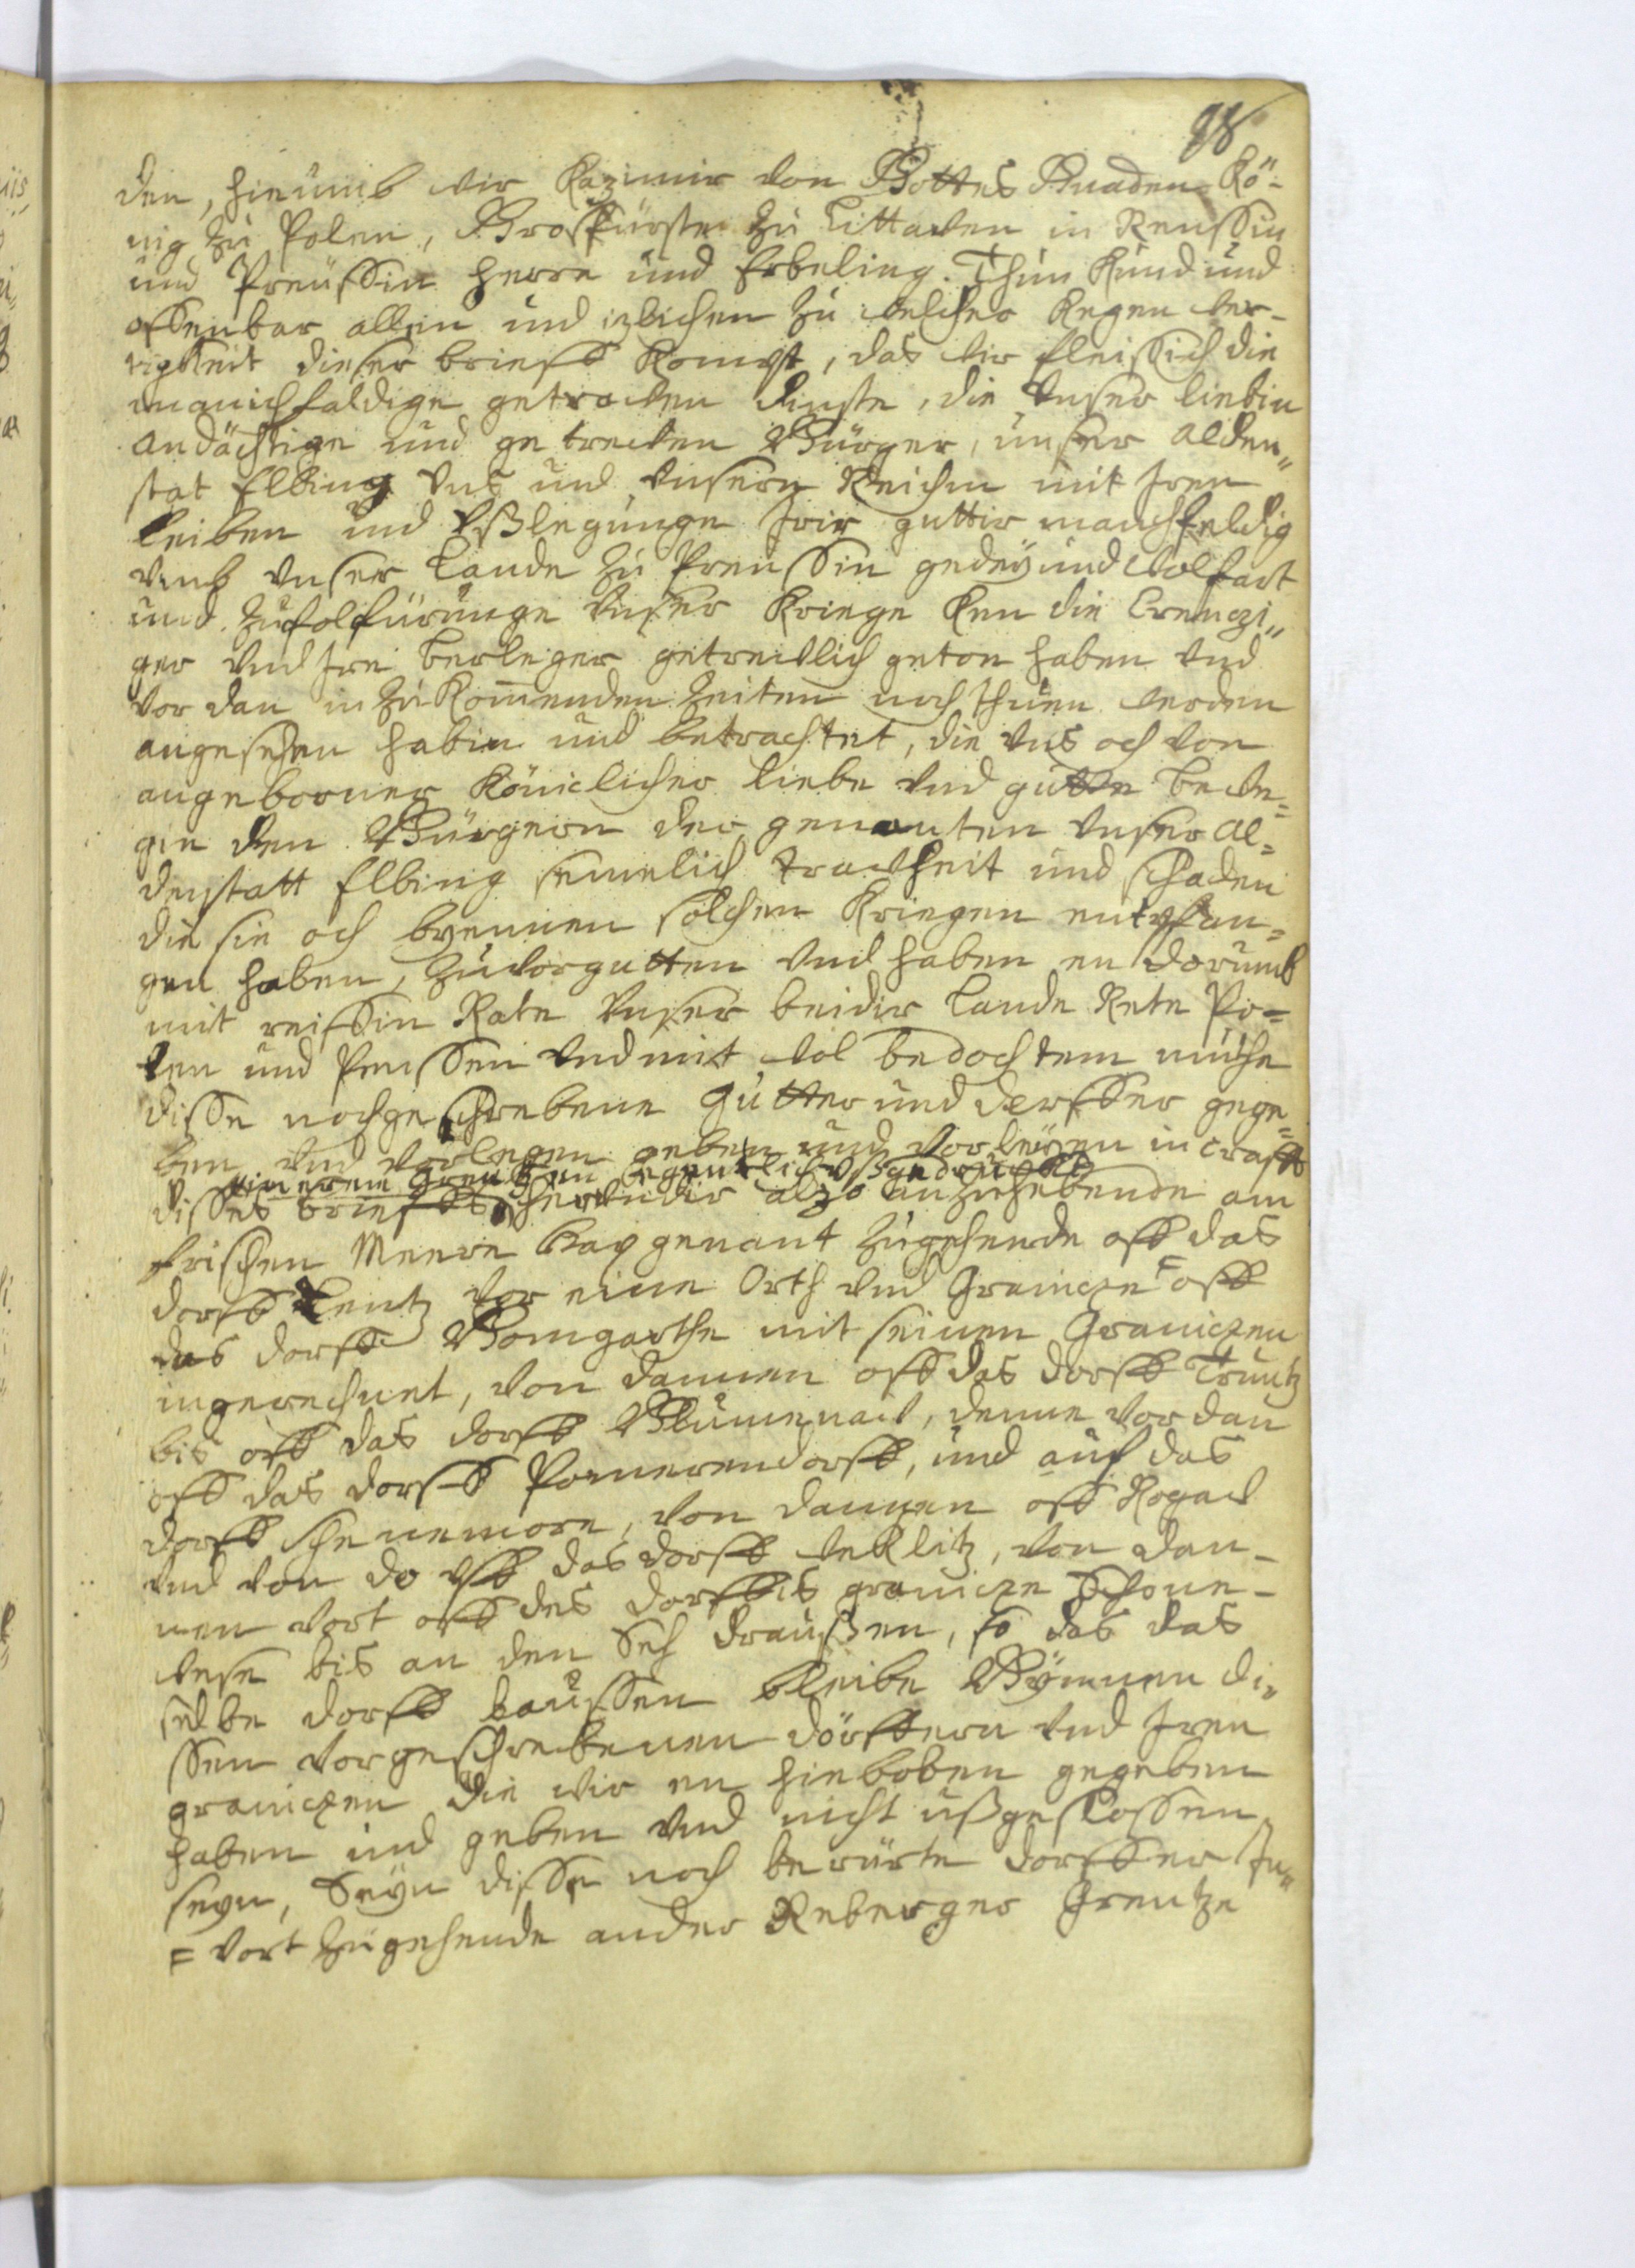 98
den, hirumb wir Kazimir von Gottes Gnaden Kö-
nig zu Polen, Grosfürste zu Littawen in Reussin
und Preussin Herre und Erbeling. Thun Kund und
offenbar allen und izlichen zu welcher Kegen wer-
tigkeit dieser brieff kompt, das wir fleissich die
manichfaldige getrawen dinste, die Vnser liebin
andächtige und getrewen Bürger, unser alden„
stat Elbing Vns und Vnsern Reichen mit Iren
leiben und Vßlegunge Irir guttir manchfeldig
vmb vnser Lande zu Preussin gedey und Wolfart
und zufolfürunge Vnser Kriege ken die Creuczi„
ger vnd Ire Verleger getrewlich geton haben vnd
vor dan in zukomenden Zeiten noch thuen werden
angesehen habin und betrachtet, die vns och von
angeborner Köniclicher liebe vnd gutte bewe=
gin den Bürgern der genanten Vnser Al=
denstatt Elbing semelich trawheit und schaden
die sie och bynnen solchen Kriegen entpfan=
gen haben, zuvorgutten vnd haben en dorumb
mit reissin Rate Vnser beidir Lande Rete Po=
len und Preussen vnd mit wol bedochtem muthe
disse nochgeschrebene Gutter und Dorffer gege=
ben vnd vorlegen geben und vorleyen in Crafft
in eren Grentzen eigentlich vßgedruckt
disses brieffes hernider alzo anzuhebende am
frischen Meere Hap genant zugehende off das
dorff Lentz vor eine Orth vnd Granicze F off
das dorff Bomgarthe mit seinen Graniczen
ingerechnet, von dannen off das dorff Truntz
bis off das dorff Blumenaw, denne vordan
off das dorff Pomerendorff, und auf das
dorff Schenemore, von dannen off Rogaw
vnd von do vff das dorff Weklitz, von dan-
nen vort off des dorffes granicze Schone-
wese bis an den Seh draußen, so das das
selbe dorff baussen bleibe Bynnen di„
ssen vorgeschrebenen dörffern vnd Iren
graniczen die wir en hieboben gegeben
haben und geben vnd nicht ußgeslossen
seyn, Seyn disse noch berürte dorffer In„
F vort zugehende an der Reberger Grentze